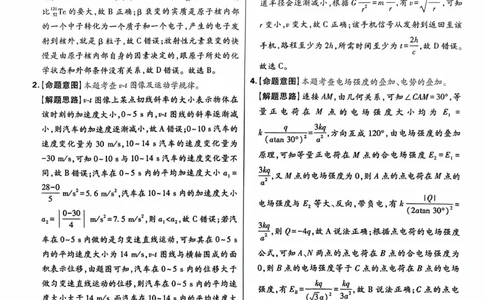 比¹³¹₅₃Te 的要大,故 B 正确;β 衰变的实质是原子核内部
的一个中子转化为一个质子和一个电子,产生的电子发
射到核外,就是 β 粒子,故 C 错误;放射性元素衰变的快
慢是由原子核内部自身的因素决定的,跟原子所处的化
学状态和外部条件没有关系,故 D 错误。故选 B。
2.【命题意图】本题考查 v-t 图像及运动学规律。
【解题思路】v-t 图像上某点切线斜率的大小表示物体在
该时刻的加速度大小,0~5 s 内,v-t 图线的斜率逐渐减
小,则汽车的加速度逐渐减小,故 A 错误;0~10 s 汽车的
速度变化量为 30 m/s,10~14 s 汽车的速度变化量为
-30 m/s,可知 0~10 s 与 10~14 s 汽车的速度变化量不
同,故 B 错误;汽车在 0~5 s 内的平均加速度大小 a₁=
(28-0)/5 m/s²=5.6 m/s²,汽车在 10~14 s 内的加速度大小
a₂=|(0-30)/4| m/s²=7.5 m/s²,则 a₁<a₂,故 C 错误;若汽
车在 0~5 s 内做的是匀变速直线运动,可知其在 0~5 s
内的平均速度大小为 14 m/s,v-t 图线与横轴围成的面
积表示位移,由题图可知,汽车在 0~5 s 内的位移大于
做匀变速直线运动的位移,则汽车在 0~5 s 内的平均速
度大小大于 14 m/s,而汽车在 10~14 s 内的平均速度大
道半径会逐渐减小,根据 G =m ,有 v= ,可知
r 变小,v 变大,故 C 正确;该手机信号从发射到返回至该
手机,路程至少为 2h,所需时间至少为 t=2h/c,故 D 错误。
故选 C。
4.【命题意图】本题考查电场强度的叠加、电势的叠加。
【解题思路】连接 AM,由几何关系,可知∠CAM=30°,等
量正电荷在 M 点的电场强度大小均为 E₁=
k q/(atan 30°)²=3kq/a²,方向互成 120°,由电场强度的叠加
原理,可知等量正电荷在 M 点的合电场强度 E₂=E₁=
3kq/a²,又 M 点的电场强度为 0,则 A 点的点电荷在 M 点的
电场强度与 E₂ 等大、反向,带负电,有 k |Q|/(2atan 30°)²=
3kq/a²,则 Q=-4q,故 A 说法正确;根据点电荷的电场强度
公式,可知 A、N 两点的点电荷在 B 点的合电场强度为
0,则 B 点的电场强度等于 C 点的点电荷在 B 点的电场
强度,有 E_B=kq/(√3a)²=kq/3a²,故 B 说法正确;C 点的点电